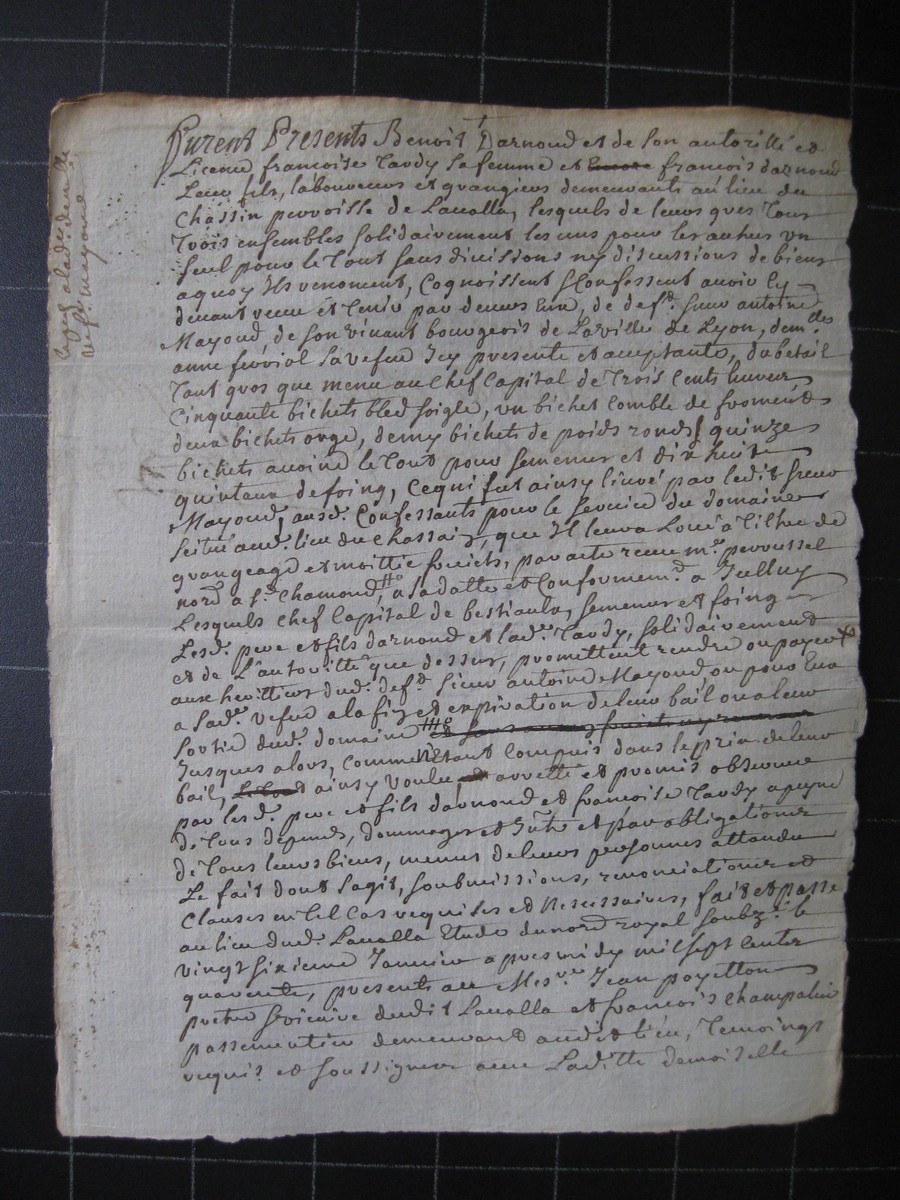 Furent Presents Benoit Darnoud et de son autorité et
Licence françoise Tardy sa femme et Encore françois darnoud
Leur fils, laboureurs et grangiers demeurants au lieu du
Chassin parroisse de Lavalla, lesquels de leurs grés Tous
Trois ensembles solidairement les uns pour les autres un
seul pour le Tout sans divissions ny discussions de biens
aquoy ils renoncent, Cognoissent & Confessent avoir Cy
devant receu et Tenir par devers Eux, de deft. sieur antoine
Mayoud, de son vivant bourgeois de La ville de Lyon, demlle
anne fériol sa vefve Icy presente et acceptante, du betail
Tant gros que menu au Chef Capital de Trois Cents livres
Cinquante bichets bled soigle, un bichet Comble de froment
deux bichets orge, demy bichets de poids ronds & quinze
bichets avoine le Tout pour semences et dix huit
quintaux de foing, Ce qui fut ainsy livré par ledit sieur
Mayoud, ausd. Confessants pour le service du domaine
scitué aud. lieu du Chassaing, que Il leur a Loué a Tiltre de
grangeage et moittie fruicts, par acte receu me. perrussel
nore a st. Chamond, a sa datte et Conformemt. a Icelluy
Lesquels Chef Capital de bestiaux, semences et foing
Lesd. pere et fils darnoud et lade. Tardy, solidairement
et de L'autoritté que dessus, promettent rendre ou payer
aux heritiers dud. deft. sieur antoine Mayoud, ou pour Eux
a sade. vefve a la fin et expiration de leur bail ou a leur
sortie dud. domaine
Jusques alors, comme étant Compris dans le prix de leur
bail, ainsy voulu arretté et promis observer
par lesd. pere et fils darnoud et françoise Tardy a peyne
de Tous depends, dommages et Intts et par obligations
de Tous leurs biens, mesmes de leurs personnes attendu
Le fait dont s'agit, soubmissions, renonciations et
Clauses en Tel Cas requises et Nescessaires, fait et passé
au lieu dud. Lavalla Etude du nore royal soubzne. le
vingt sixieme Janvier apres midy mil sept cents
quarente, presents au Mesre Jean poyetton
pretre vicaire dudit Lavalla et françois Champalier
passementier demeurant audit lieu, Temoings
requis et soussignes avec Laditte demoiselle